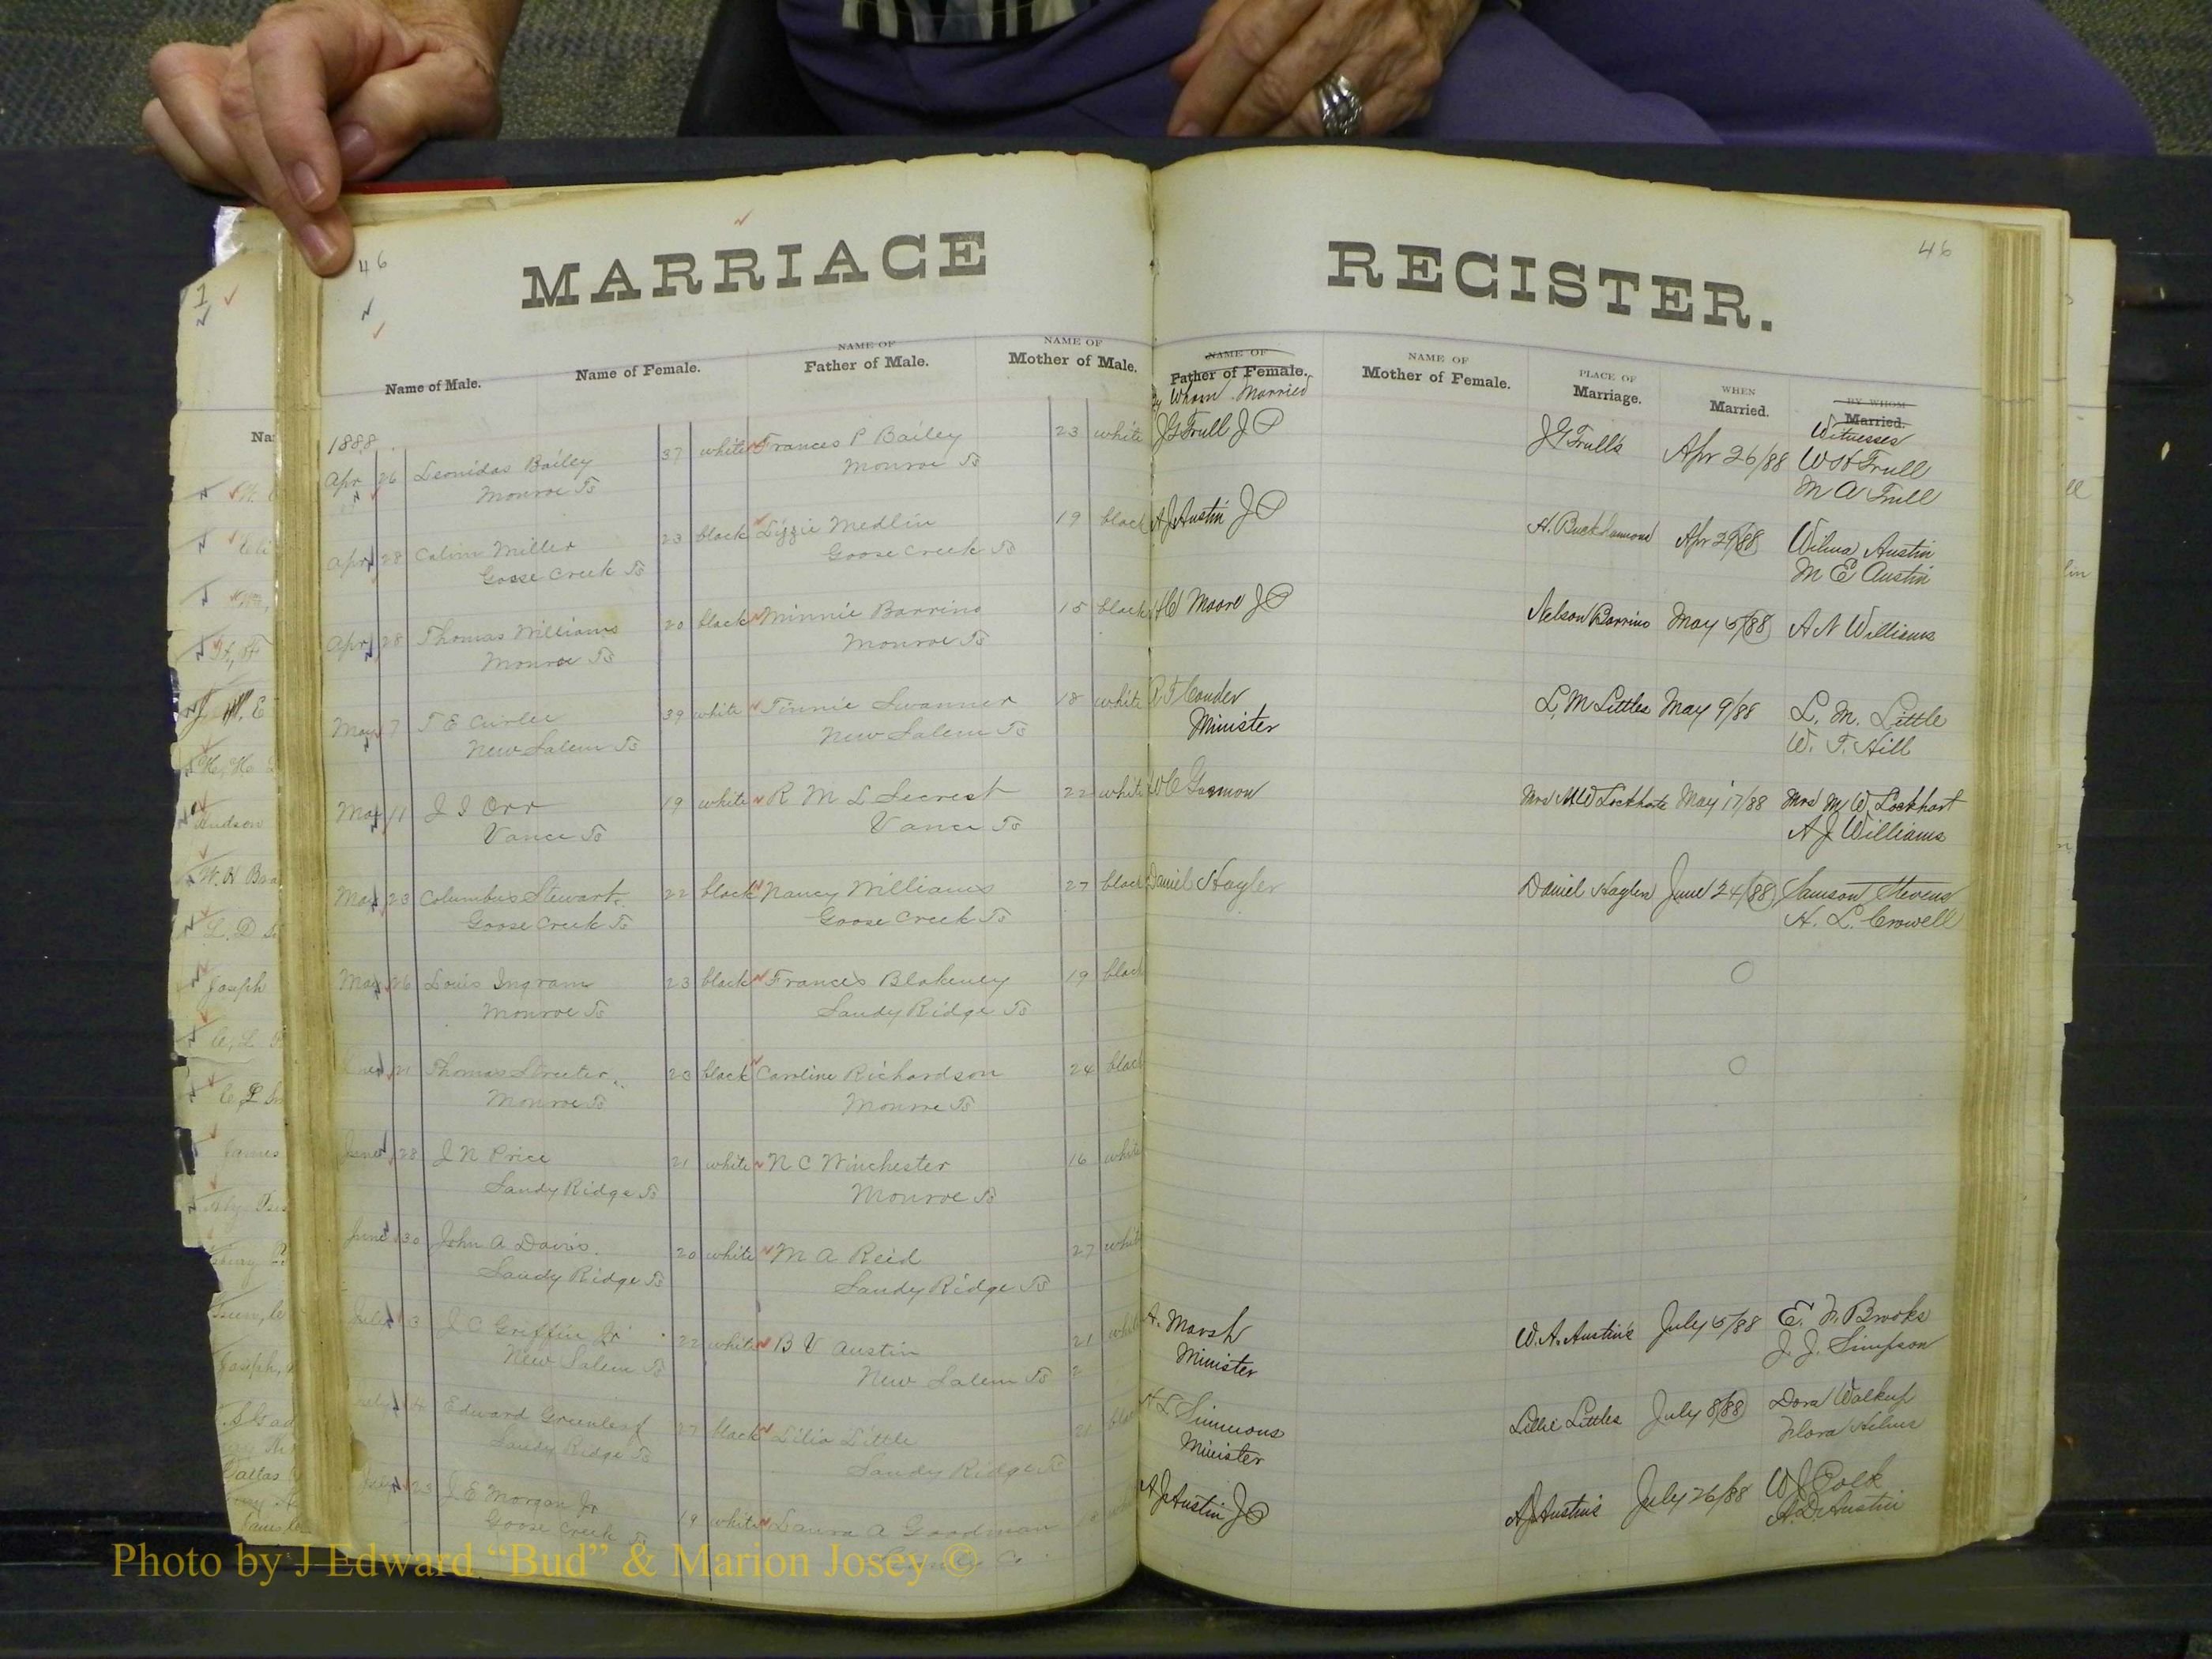 46
MARRIAGE
REGISTER.
46
Name of Male.
Name of Female.
NAME OF
Father of Male.
NAME OF
Mother of Male.
NAME OF
Father of Female.
By Whom Married
NAME OF
Mother of Female.
PLACE OF
Marriage.
WHEN
Married.
BY WHOM
Married.
Witnesses
1888
Apr 26 Leonidas Bailey 37 white Frances P Bailey 23 white J G Trull J P J G Trull's Apr 26/88 W H Trull
Monroe Ts Monroe Ts M A Trull
Apr 28 Calvin Miller 23 black Lizzie Medlin 19 black A J Austin J P Apr 29/88 Wilma Austin
Goose Creek Ts Goose Creek Ts M E Austin
Apr 28 Thomas Williams 20 black Minnie Barrino 15 black H C Moore J P Nelson Barrino May 5/88 A N Williams
Monroe Ts Monroe Ts
May 7 T E Curlee 39 white Tinnie Swanner 18 white Minister L, M Littles May 9/88 L. M. Little
New Salem Ts New Salem Ts W. T. Hill
May 11 J I Orr 19 white R M L Secrest 22 white Mrs M W Lockharts May 17/88 Mrs M. W. Lockhart
Vance Ts Vance Ts A J Williams
May 23 Columbus Stewart 22 black Nancy Williams 27 black Daniel Hagler Daniel Haglers June 24/88 Samson Stevens
Goose Creek Ts Goose Creek Ts H. L. Crowell
May 26 Louis Ingram 23 black Frances Blakeney 19 black
Monroe Ts Sandy Ridge Ts
June 21 Thomas Streeter 23 black Caroline Richardson 24 black
Monroe Ts Monroe Ts
June 28 J N Price 21 white N C Winchester 16 white
Sandy Ridge Ts Monroe Ts
June 30 John A Davis 20 white M A Reid 27 white
Sandy Ridge Ts Sandy Ridge Ts
July 3 J C Griffin Jr 22 white B V Austin 21 white A. Marsh W. A. Austin's July 5/88 E. N. Brooks
New Salem Ts New Salem Ts Minister J. J. Simpson
July 4 Edward Greenleaf 27 black Lilia Little 21 black Simmons Lillie Littles July 8/88 Dora Walkup
Sandy Ridge Ts Sandy Ridge Ts Minister Flora Helms
July 23 J E Morgan Jr 19 white Laura A Goodman A J Austin J P A J Austins July 26/88 W J Polk
Goose Creek Ts Co A. D. Austin
Photo by J Edward “Bud” & Marion Josey ©